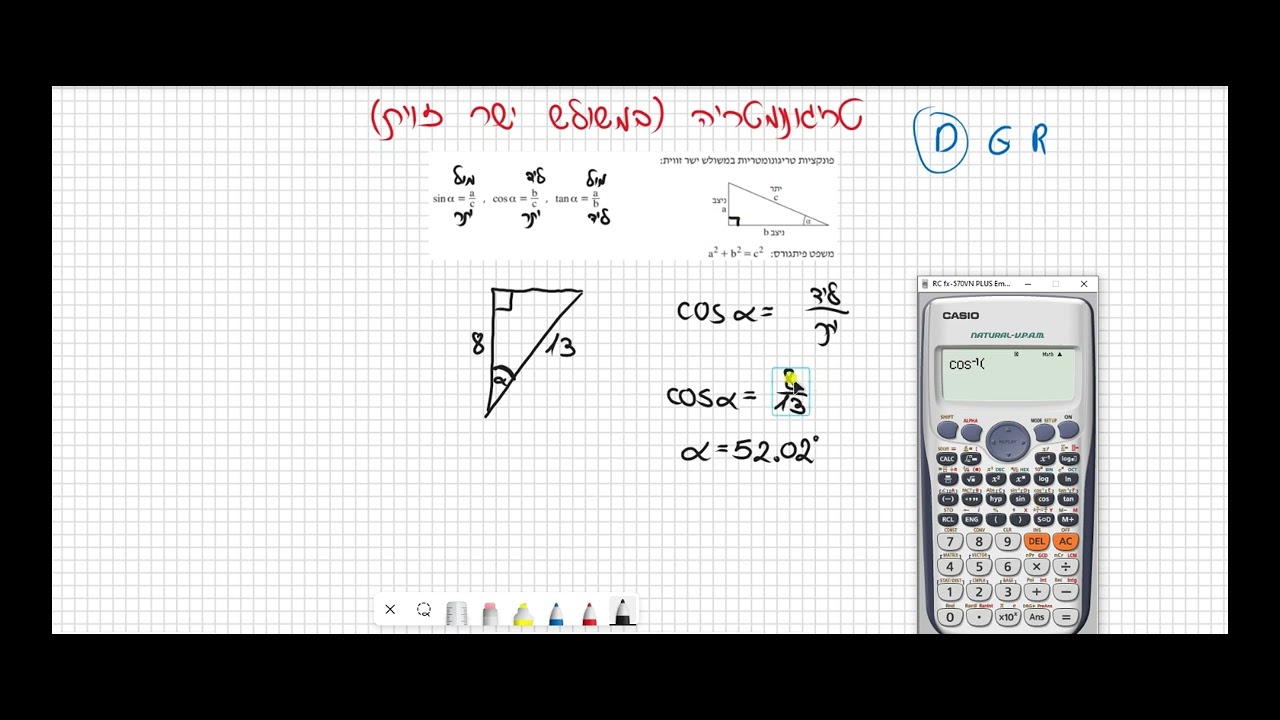 טריגונומטריה (במשולש ישר זוית)
D G R
פונקציות טריגונומטריות במשולש ישר זווית:
מול ליד מול
sin α = a/c , cos α = b/c , tan α = a/b
יתר יתר ליד
יתר
c
ניצב
a
α
ניצב b
משפט פיתגורס: a² + b² = c²
8
13
α
cos α = ליד/יתר
cos α = 8/13
α = 52.02°
RC fx-570VN PLUS Em...
CASIO
NATURAL-V.P.A.M.
Math
cos⁻¹(
SHIFT ALPHA REPLAY MODE SETUP ON
CALC x⁻¹ log
x² log ln
(−) hyp sin cos tan
RCL ENG ( ) S⇔D M+
7 8 9 DEL AC
4 5 6 × ÷
1 2 3 + −
0 . ×10ˣ Ans =